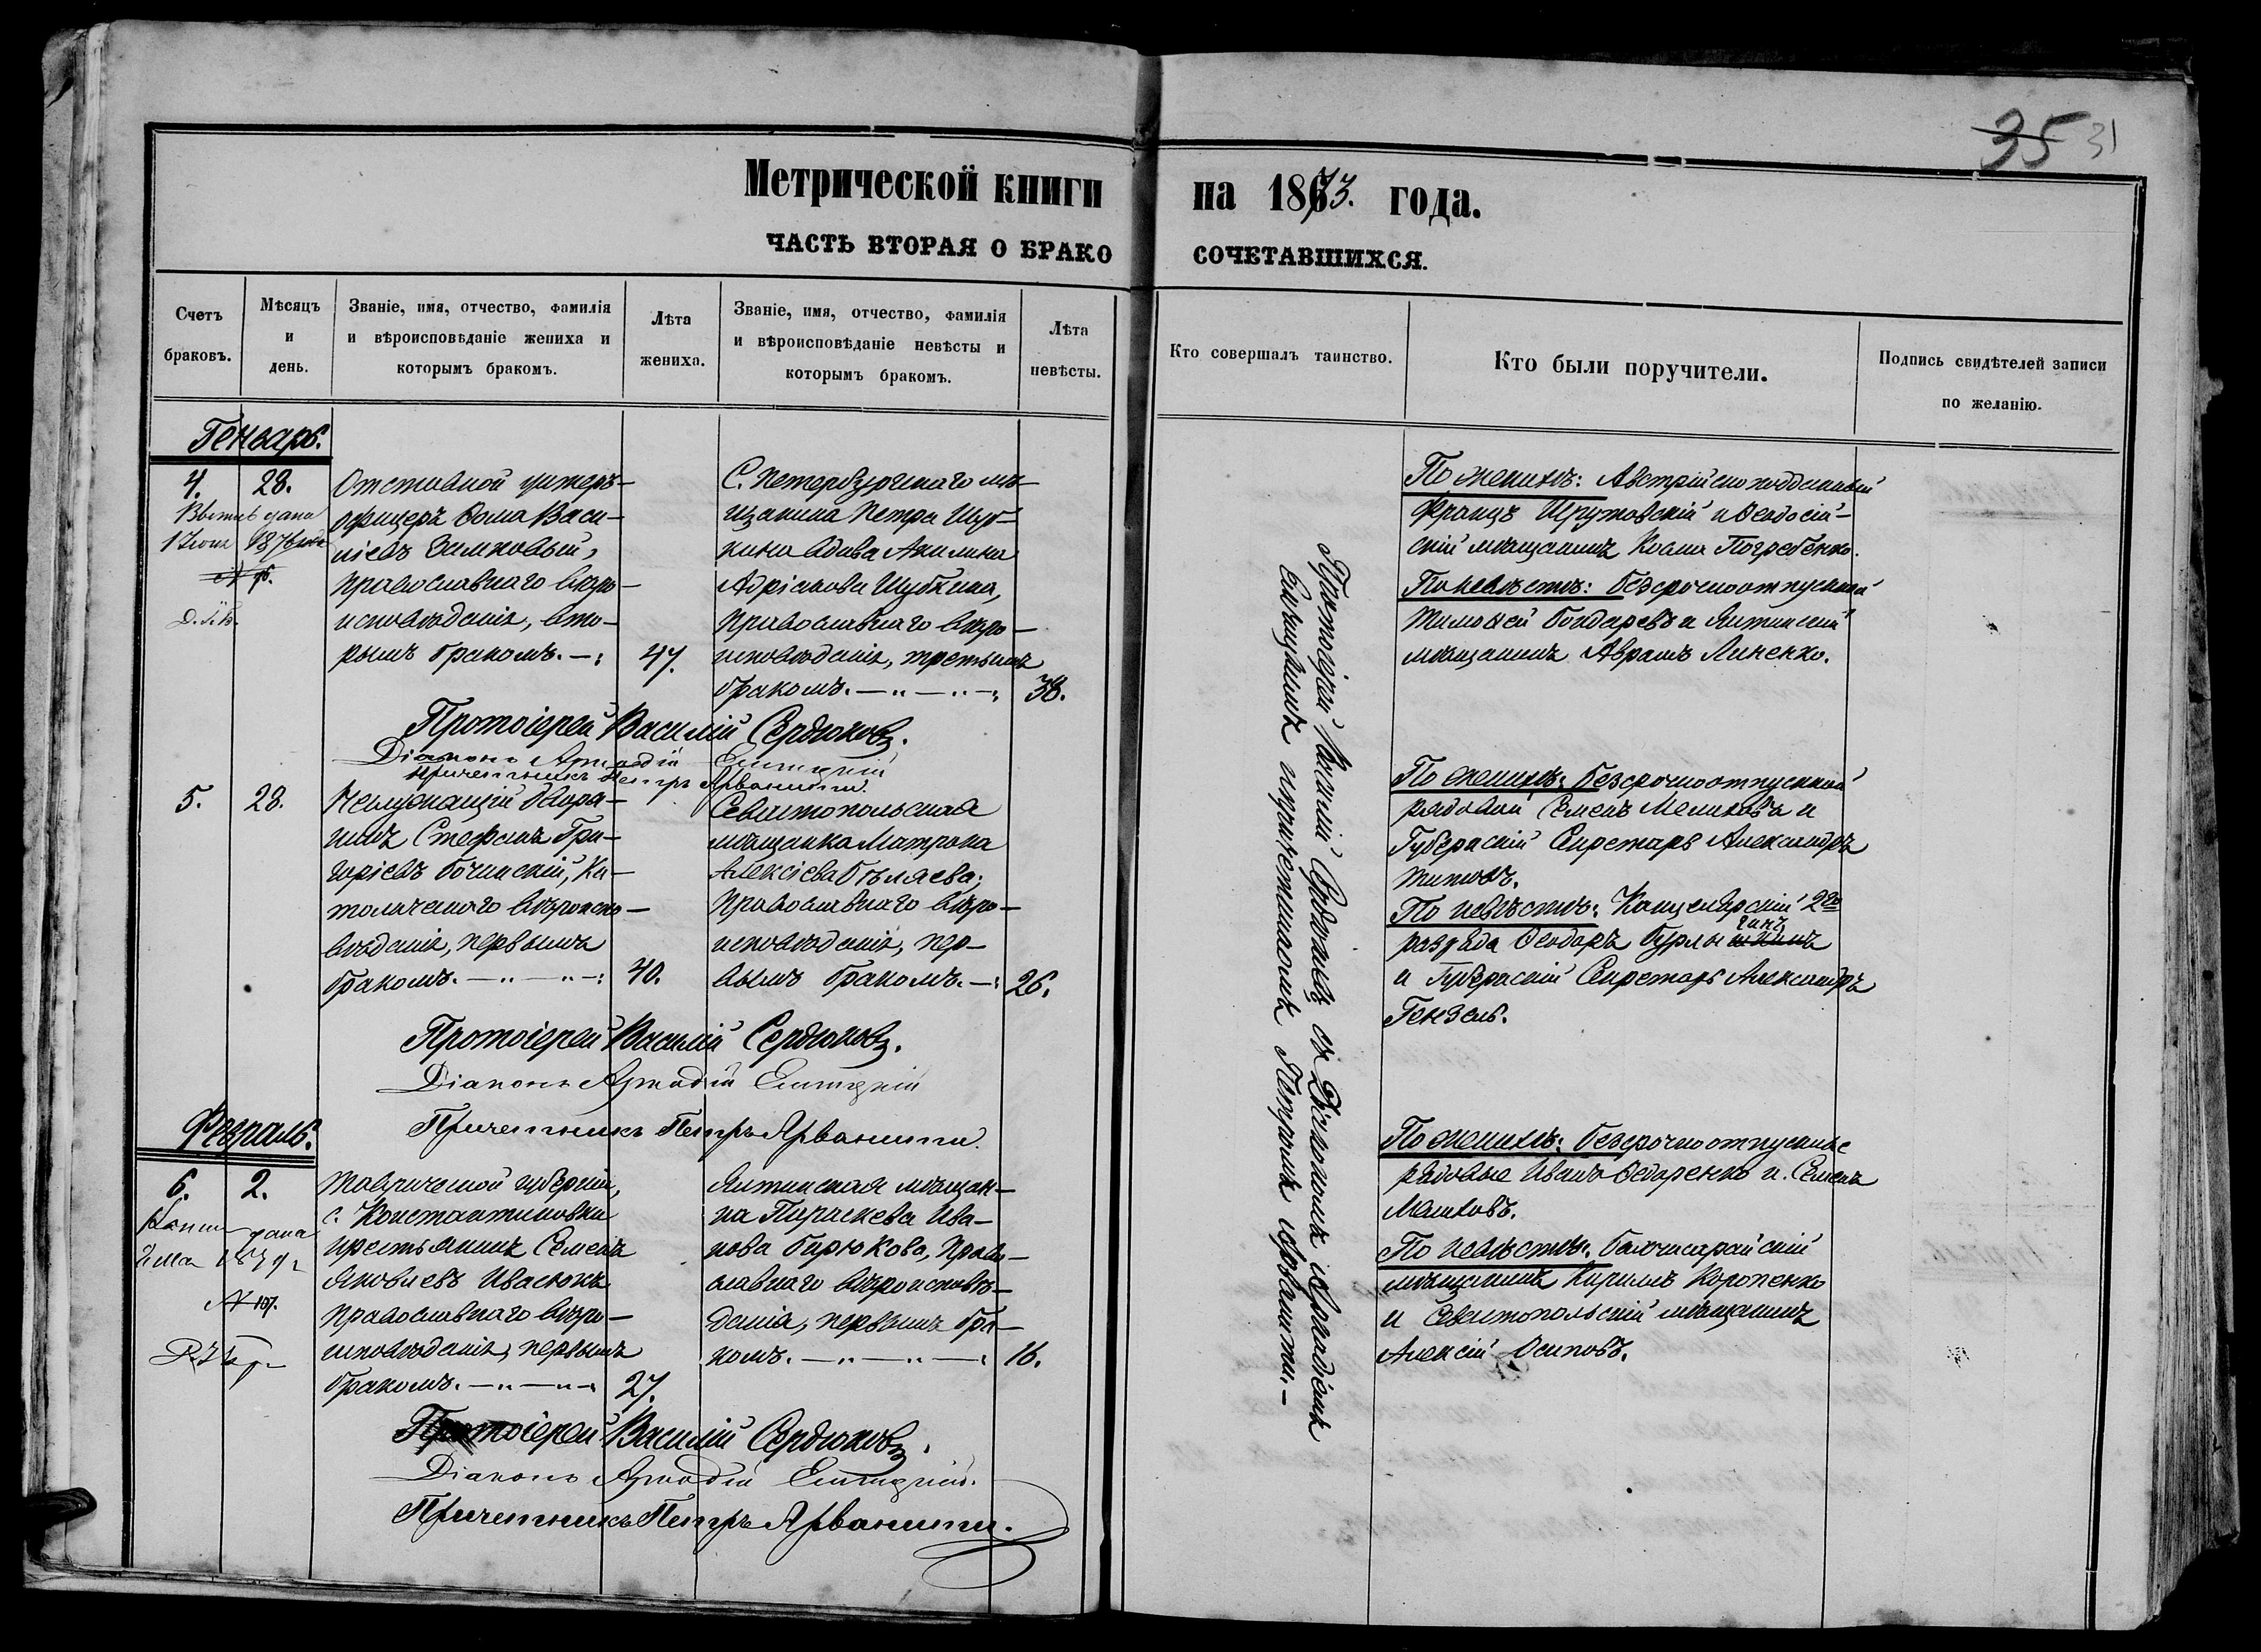 35 31
Метрической книги на 1873. года.
ЧАСТЬ ВТОРАЯ О БРАКО СОЧЕТАВШИХСЯ.
Счетъ
браковъ.
Мѣсяцъ
и
день.
Званіе, имя, отчество, фамилія
и вѣроисповѣданіе жениха и
которымъ бракомъ.
Лѣта
жениха.
Званіе, имя, отчество, фамилія
и вѣроисповѣданіе невѣсты и
которымъ бракомъ.
Лѣта
невѣсты.
Кто совершалъ таинство.
Кто были поручители.
Подпись свидѣтелей записи
по желанію.
Генварь.
4. 28.
дана
1 Іюня 1876
Отставной унтеръ-
офицеръ Ѳома Васи-
ліевъ Замковый,
православнаго вѣро-
исповѣданія, вто-
рымъ бракомъ. 47.
С. Петербургскаго мѣ-
щанина Петра Шуб-
кина вдова Акилина
Адріанова Шубкина,
православнаго вѣро-
исповѣданія, третьимъ
бракомъ. 38.
По женихѣ: Австрійско подданный
Францъ Шрутовскій и Ѳеодосій-
скій мѣщанинъ Козма Погребенко.
По невѣстѣ: безсрочноотпускной
Тимоѳей Бондаревъ и Ялтинскій
мѣщанинъ Аврамъ Линенко.
Протоіерей Василій Сердюковъ.
Діаконъ Аркадій
Причетникъ Петръ Арванити.
5. 28.
Неслужащій дворя-
нинъ Стефанъ Гри-
горіевъ Бочинскій, Ка-
толическаго вѣроиспо-
вѣданія, первымъ
бракомъ. 40.
Севастопольская
мѣщанка Матрона
Алексіева Бѣляева,
православнаго вѣро-
исповѣданія, пер-
вымъ бракомъ. 26.
По женихѣ: безсрочноотпускной
рядовой Семенъ Мешковъ и
Губернскій Секретарь Александръ
Титовъ.
По невѣстѣ: Канцелярскій 2го
разряда Ѳеодоръ Бурлы
и Губернскій Секретарь Александръ
Гензель.
Протоіерей Василій Сердюковъ.
Діаконъ Аркадій
Причетникъ Петръ Арванити.
Февраль.
6. 2.
дана
№ 107.
Таврической губерніи,
с. Константиновки
крестьянинъ Семенъ
Яковлевъ Ивасюкъ
православнаго вѣро-
исповѣданія, первымъ
бракомъ. 27.
Ялтинская мѣщан-
ка Параскева Ива-
нова Бирюкова, право-
славнаго вѣроисповѣ-
данія, первымъ бра-
комъ. 16.
По женихѣ: безсрочноотпускные
рядовые Иванъ Ѳедоренко и Семенъ
Мешковъ.
По невѣстѣ: Бахчисарайскій
мѣщанинъ Кирилъ Коропенко
и Севастопольскій мѣщанинъ
Алексій Осиповъ.
Протоіерей Василій Сердюковъ.
Діаконъ Аркадій
Причетникъ Петръ Арванити.
Протоіерей Василій Сердюковъ съ Діакономъ Аркадіемъ
и причетникомъ Петромъ Арванити.